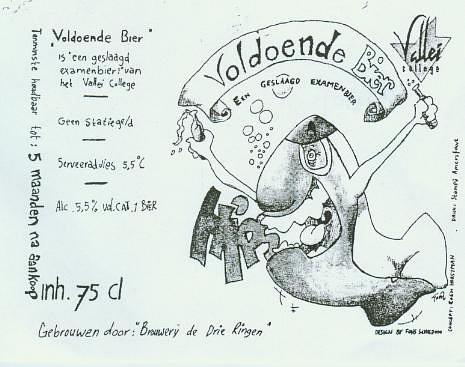 "Voldoende Bier"
is "een geslaagd
examenbier" van
het Vallei College
Geen Statiegeld
Serveeradvies 5,5°C
Alc. 5,5% vol. CAT. 1 BIER
Tenminste houdbaar tot: 5 maanden na aankoop
inh. 75 cl
Gebrouwen door: "Brouwerij de Drie Ringen"
Voldoende Bier
EEN GESLAAGD EXAMENBIER
Vallei
college
DESIGN BY FONS
CONCEPT:
DRUK:
Amersfoort